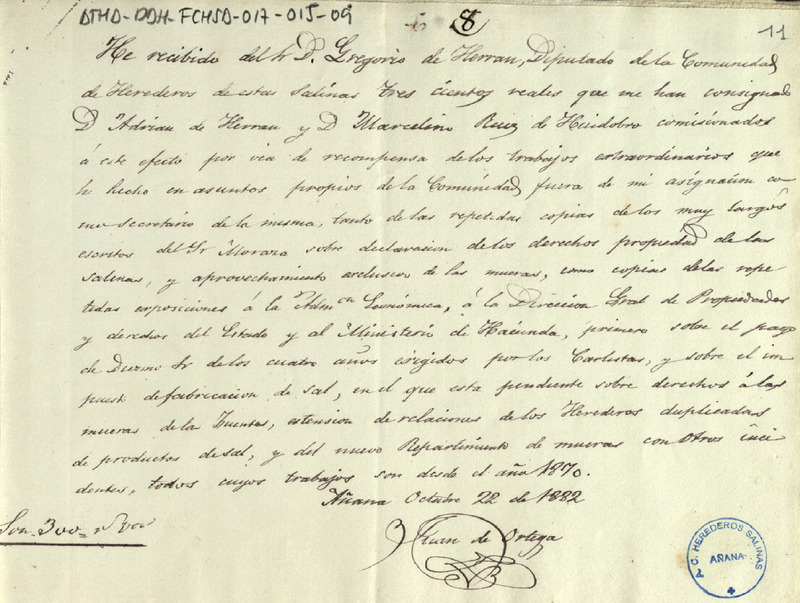 DTHD-DDH-FCHSD-017-015-09
8
11
He recibido del Sr D. Gregorio de Herran, Diputado de la Comunidad
de Herederos de estas Salinas Tres cientos reales que me han consignado
D Adrian de Herran y D Marcelino Ruiz de Huidobro comisionados
á este efecto por via de recompensa de los trabajos estraordinarios que
he hecho en asuntos propios de la Comunidad fuera de mi asignacion co-
mo secretario de la misma, tanto de las repetidas copias de los muy largos
escritos del Sr Moraza sobre declaracion de los derechos propiedad de las
Salinas, y aprovechamiento exclusivo de las mueras, como copias de las repe
tidas exposiciones á la Admcn Económica, á la Direccion Gral de Propiedades
y derechos del Estado y al Ministerio de Hacienda, primero sobre el pago
de Diezmo de los cuatro años exigidos por los Carlistas, y sobre el im
puest de fabricacion de sal, en el que esta pendiente sobre derechos á las
mueras de la Fuentes, estension de relaciones de los Herederos duplicadas
de productos de sal, y del nuevo Repartimiento de mueras con otros inci
dentes, todos cuyos trabajos son desde el año 1870.
Añana Octubre 22 de 1882
Son 300 = r
Juan de Ortega
C. HEREDEROS SALINAS
AÑANA